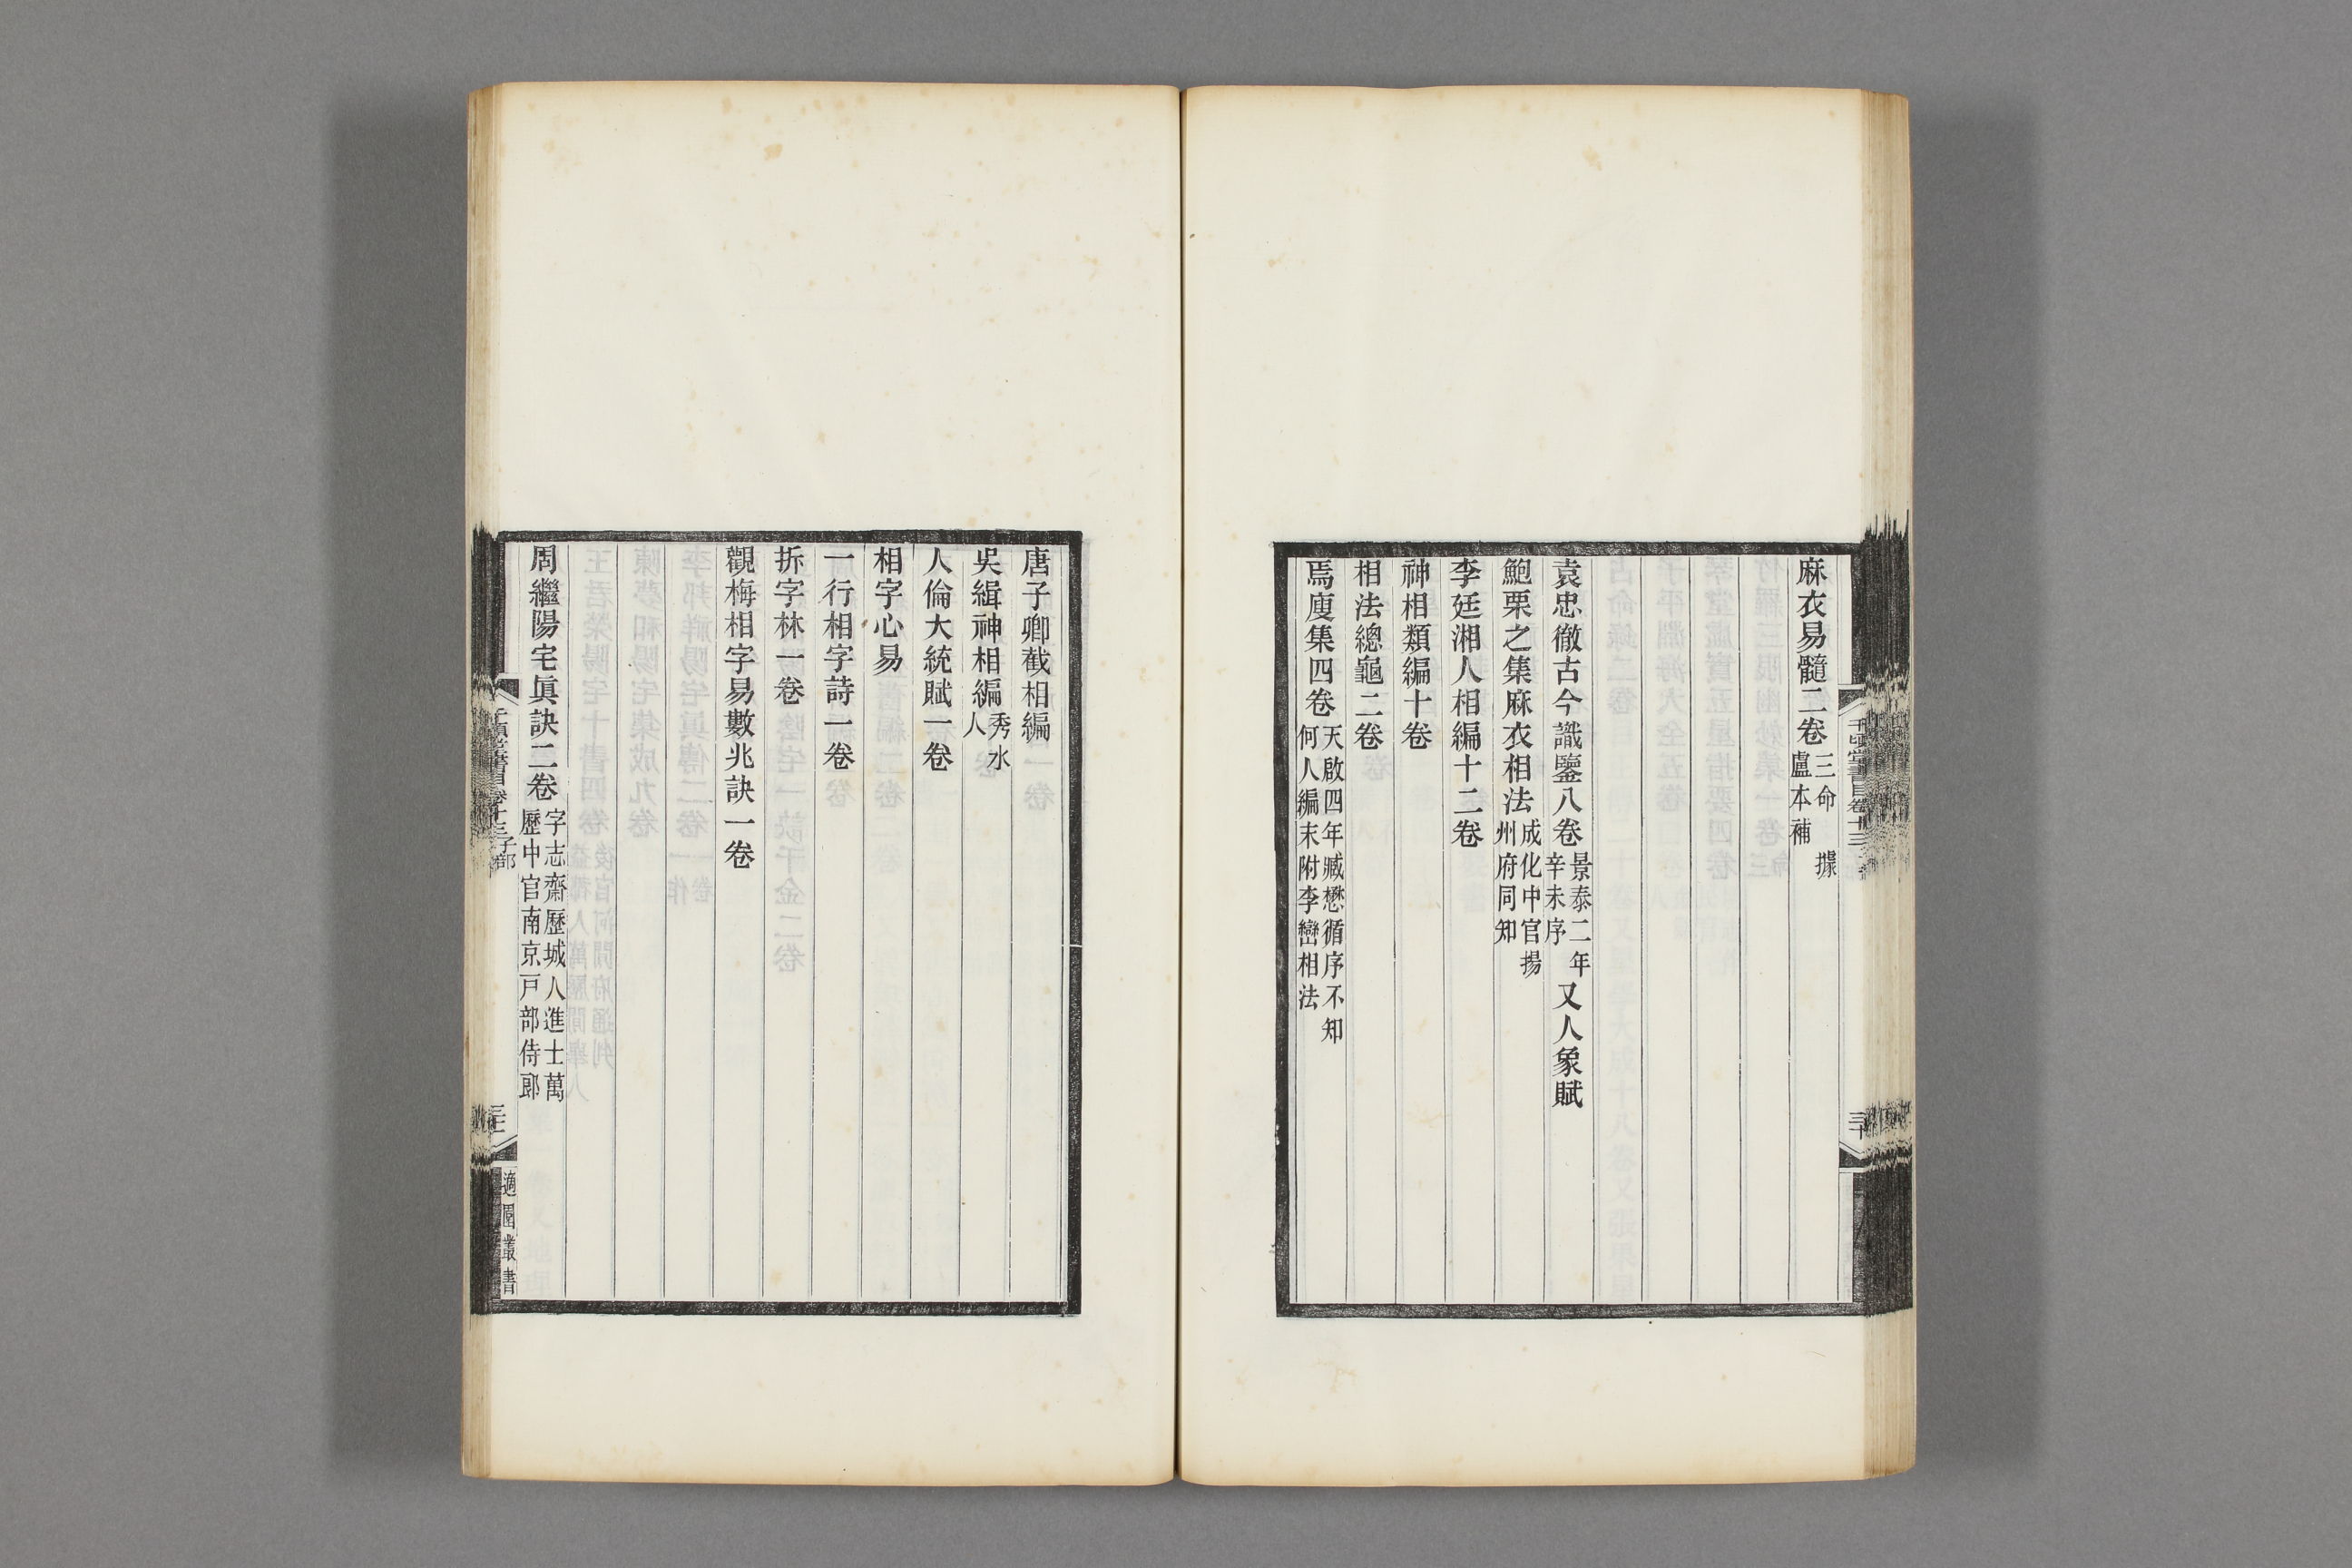 麻衣易髓二卷三命 據盧本補
袁忠徹古今識鑒八卷景泰二年辛未序又人象賦
鮑栗之集麻衣相法成化中官揚州府同知
李廷湘人相編十二卷
神相類編十卷
相法總龜二卷
焉廋集四卷天啟四年臧懋循序不知何人編末附李巒相法
千頃堂書目卷十三
三十
唐子卿截相編
吳緝神相編秀水人
人倫大統賦一卷
相字心易
一行相字詩一卷
拆字林一卷
觀梅相字易數兆訣一卷
周繼陽宅眞訣二卷字志齋歷城人進士萬歷中官南京戸部侍郎
千頃堂書目 卷十三子部
適園叢書